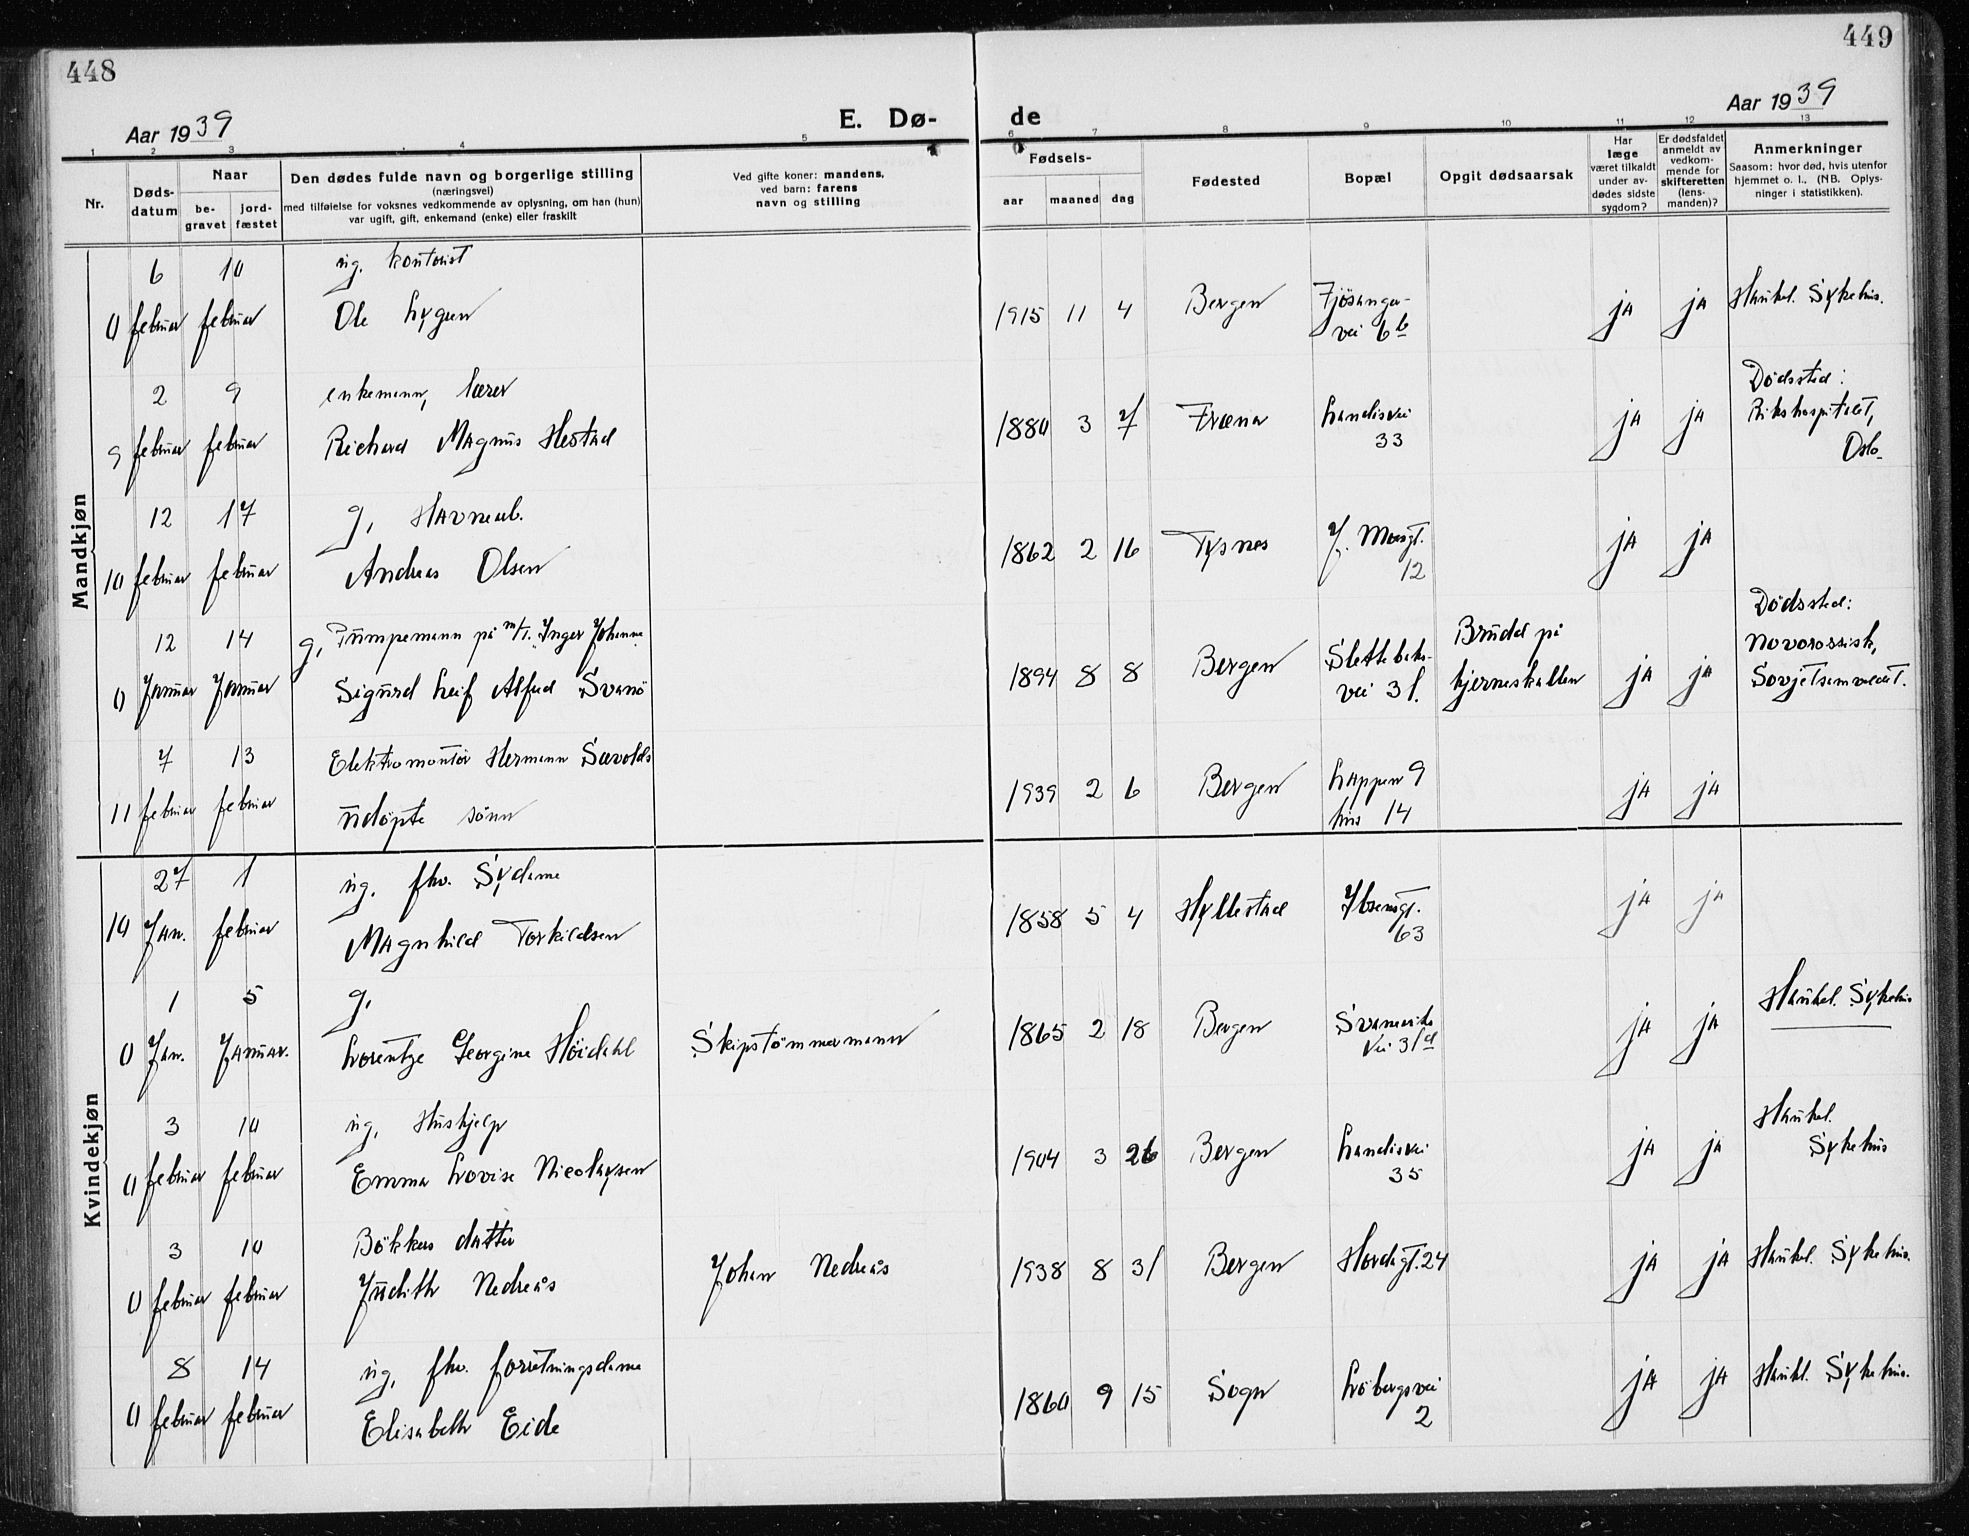 448
449
Aar 1939
E. Dø-
de
Aar 1939
1
2
3
4
5
6
7
8
9
10
11
12
13
Nr.
Døds-
datum
Naar
be-
gravet
jord-
fæstet
Den dødes fulde navn og borgerlige stilling
(næringsvei)
med tilføielse for voksnes vedkommende av oplysning, om han (hun)
var ugift, gift, enkemand (enke) eller fraskilt
Ved gifte koner: mandens,
ved barn: farens
navn og stilling
Fødsels-
aar
maaned
dag
Fødested
Bopæl
Opgit dødsaarsak
Har
læge
været tilkaldt
under av-
dødes sidste
sygdom?
Er dødsfaldet
anmeldt av
vedkom-
mende for
skifteretten
(lens-
manden)?
Anmerkninger
Saasom: hvor død, hvis utenfor
hjemmet o. l., (NB. Oplys-
ninger i statistikken).
Mandkjøn
6 10 ug. kontorist
0 februar februar Ole Lygren 1915 11 4 Bergen Fjøsanger-
vei 6b ja ja Haukel. Sykehus.
2 9 enkemann, lærer
9 februar februar Richard Magnus Hestad 1880 3 7 Fræna Landåsvei
33 ja ja Dødssted:
Rikshospitalet,
Oslo.
12 17 g, Havnearb.
10 februar februar Andreas Olsen 1862 2 16 Tysnes
12 ja ja
12 14 g, Pumpemann på m/t. "Inger Johanne"
0 Januar Januar Sigurd Leif Alfred Svanø 1894 8 8 Bergen Slettebaks-
vei 31. Brudd på
hjerneskallen ja ja Dødssted:
Novorossisk,
Sovjetsamveldet.
7 13 Elektromontør Hermann Sævolds
11 februar februar udøpte sønn 1939 2 6 Bergen Lappen 9
hus 14 ja ja
Kvindekjøn
27 1 ug. fhv. Sydame
10 Jan. februar Magnhild Torkildsen 1858 5 4 Hyllestad Ibsensgt.
63 ja ja
1 5 g,
0 Jan. Januar. Lorentze Georgine Høidahl Skipstømmermann 1865 2 18 Bergen Svaneviks
vei 31d ja ja Haukel. Sykehus
3 10 ug, Hushjelp
0 februar februar Emma Lovise Nicolaysen 1904 3 26 Bergen Landåsvei
35 ja ja Haukel.
Sykehus
3 10 Bøkkers datter
0 februar februar Judith Nedreås Johan Nedreås 1938 8 31 Bergen Hordagt. 24 ja ja Haukel. Sykehus.
8 14 ug, fhv. forretningsdame
0 februar februar Elisabeth Eide 1860 9 15 Sogn Løbergsvei
2 ja ja Haukl. Sykehus.